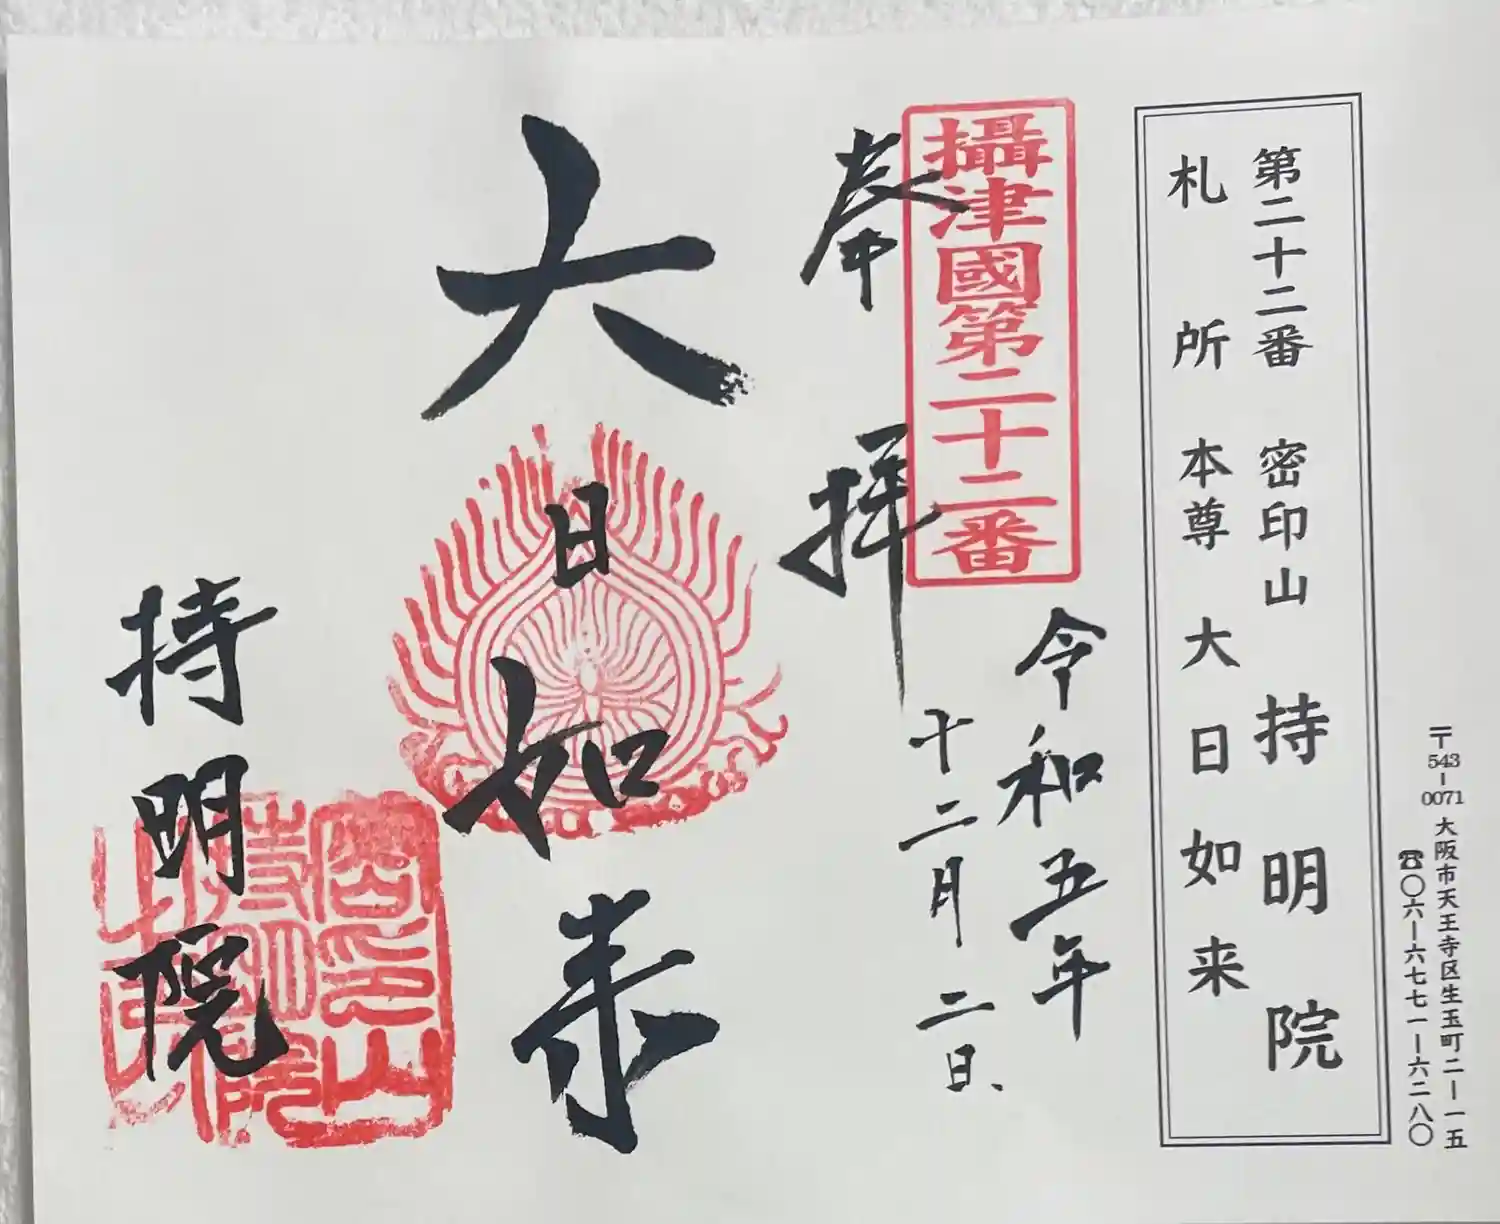 〒543-0071 大阪市天王寺区生玉町二-一五
☎〇六-六七七一-六二八〇
第二十二番 密印山 持明院
札所 本尊 大日如来
攝津國第二十二番
奉拝
令和五年
十二月二日
大日如来
持明院
密印山
持明院